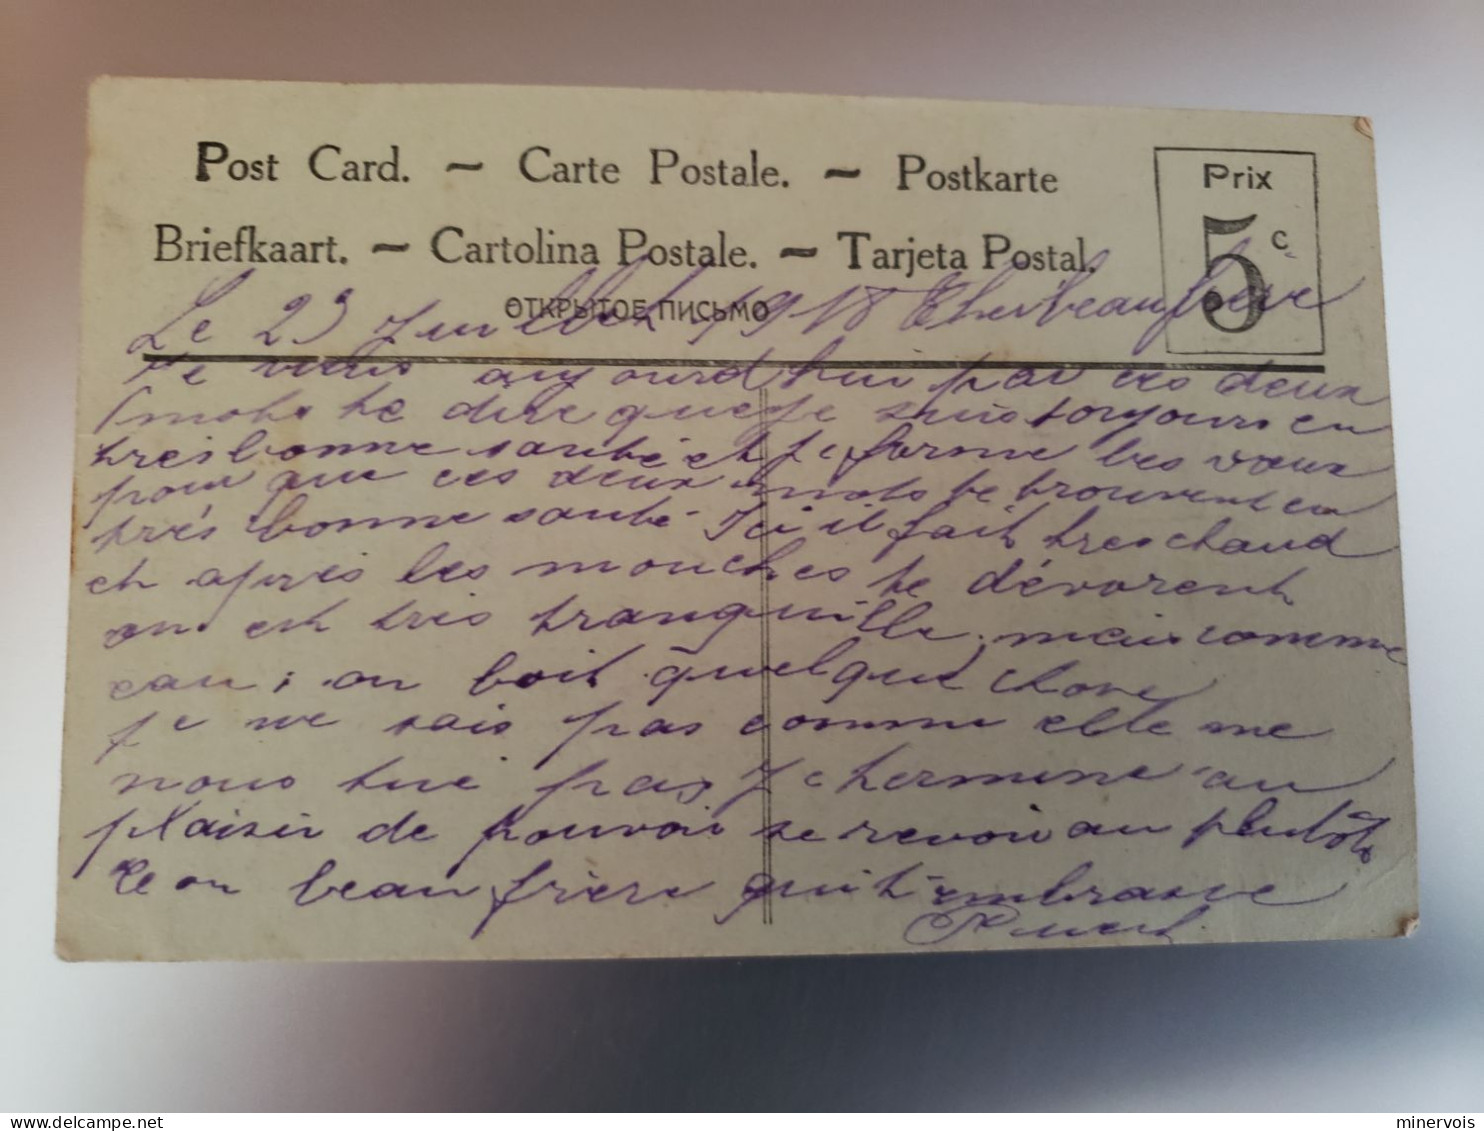 Post Card. ~ Carte Postale. ~ Postkarte
Briefkaart. ~ Cartolina Postale. ~ Tarjeta Postal.
ОТКРЫТОЕ ПИСЬМО
Prix
5 c
Le 23 Juillet 1918 Cher beau frere
Je viens aujourd hui par ces deux
mots te dire que je suis toujours en
tres bonne santé et je forme les vœux
pour que ces deux mots te trouvent en
très bonne santé. Ici il fait tres chaud
et après les mouches te dévorent
on est très tranquille, mais comme
eau, on boit quelque chose
je ne sais pas comme elle ne
nous tue pas Je termine au
plaisir de pouvoir se revoir au plutôt
ton beau frère qui t'embrasse
minervois